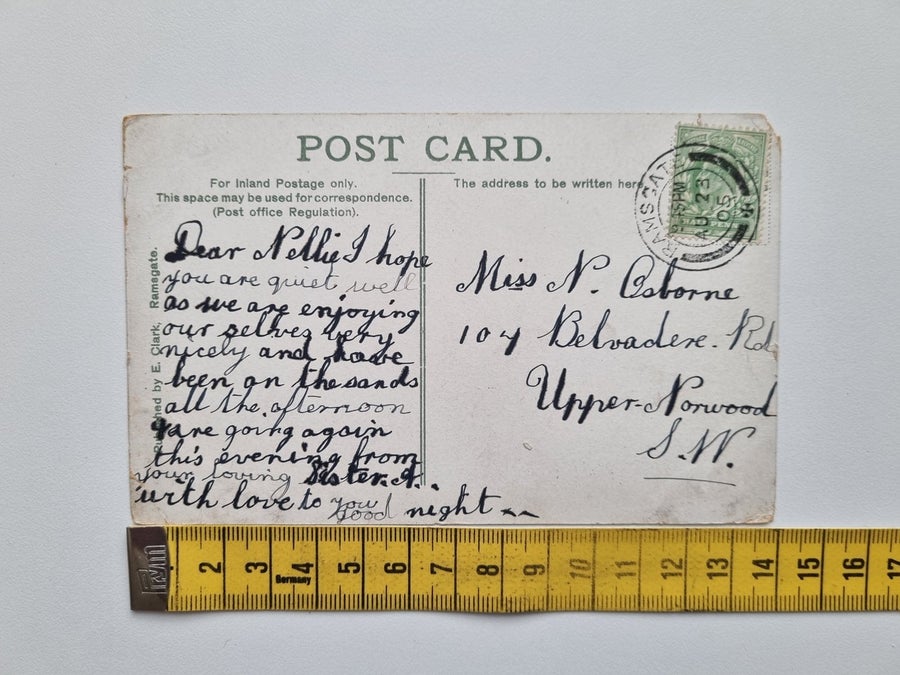 POST CARD.
For Inland Postage only.
This space may be used for correspondence.
(Post office Regulation).
The address to be written here
RAMSGATE
PM
AU 23
05
Published by E. Clark, Ramsgate.
Dear Nellie I hope
you are quiet well
as we are enjoying
our selves very
nicely and have
been on the sands
all the afternoon
& are going again
this evening from
your loving Sister. A.
with love to you
good night
Miss N. Osborne
104 Belvadere. Rd
Upper-Norwood
S. W.
2 3 4 5 6 7 8 9 10 11 12 13 14 15 16 17
Germany